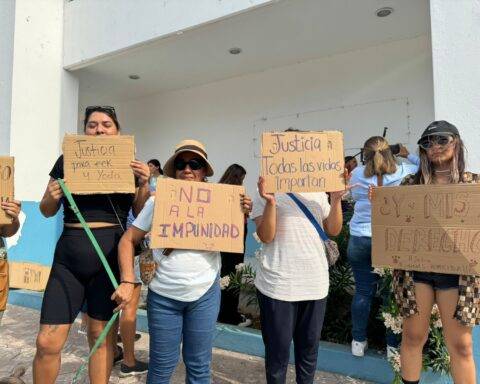 Justicia
para eek
y Yoda
NO
A LA
IMPUNIDAD
Justicia
Todas las vidas
importan
¿Y MIS
DERECHOS